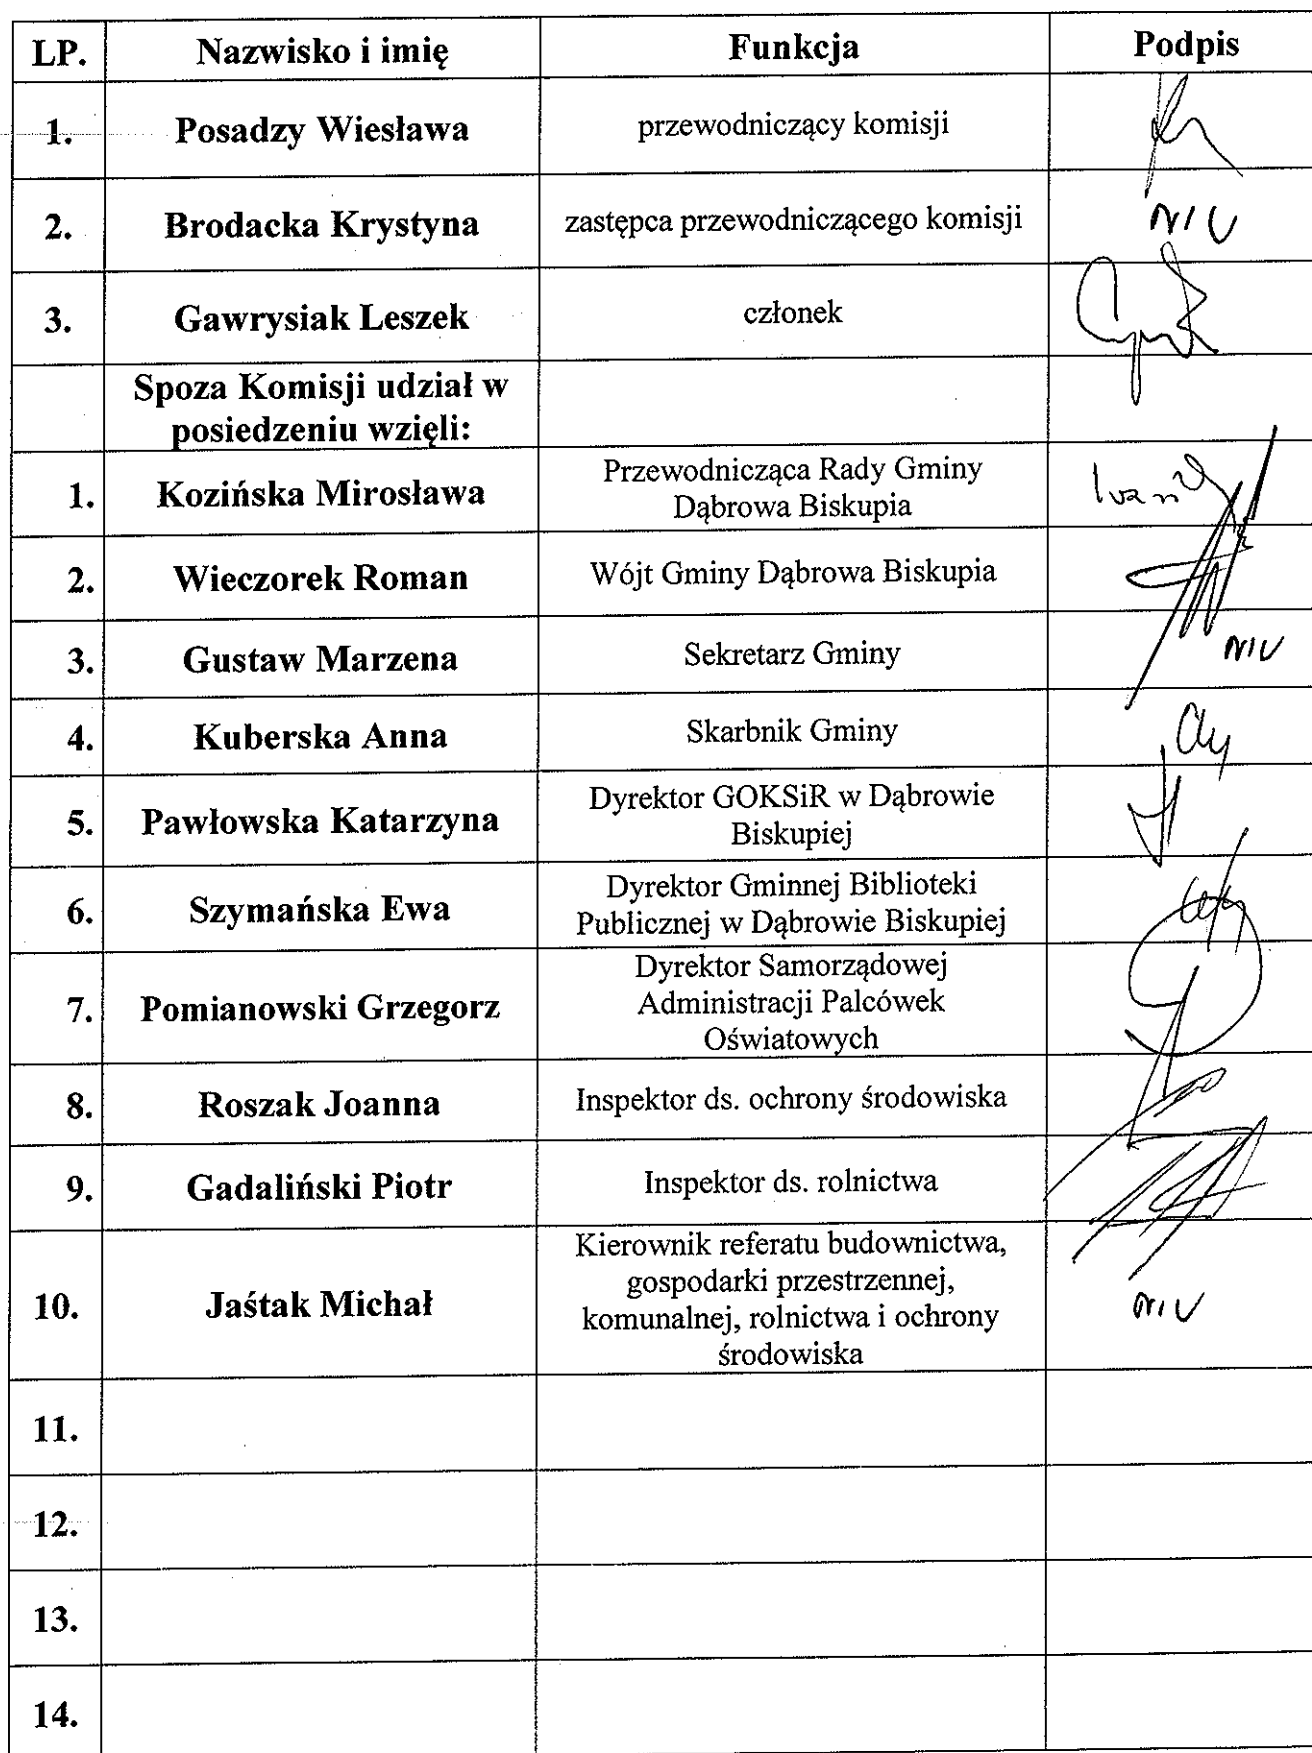 LP. Nazwisko i imię Funkcja Podpis
1. Posadzy Wiesława przewodniczący komisji
2. Brodacka Krystyna zastępca przewodniczącego komisji
3. Gawrysiak Leszek członek
Spoza Komisji udział w
posiedzeniu wzięli:
1. Kozińska Mirosława Przewodnicząca Rady Gminy
Dąbrowa Biskupia
2. Wieczorek Roman Wójt Gminy Dąbrowa Biskupia
3. Gustaw Marzena Sekretarz Gminy
4. Kuberska Anna Skarbnik Gminy
5. Pawłowska Katarzyna Dyrektor GOKSiR w Dąbrowie
Biskupiej
6. Szymańska Ewa Dyrektor Gminnej Biblioteki
Publicznej w Dąbrowie Biskupiej
7. Pomianowski Grzegorz Dyrektor Samorządowej
Administracji Palcówek
Oświatowych
8. Roszak Joanna Inspektor ds. ochrony środowiska
9. Gadaliński Piotr Inspektor ds. rolnictwa
10. Jaśtak Michał Kierownik referatu budownictwa,
gospodarki przestrzennej,
komunalnej, rolnictwa i ochrony
środowiska
11.
12.
13.
14.